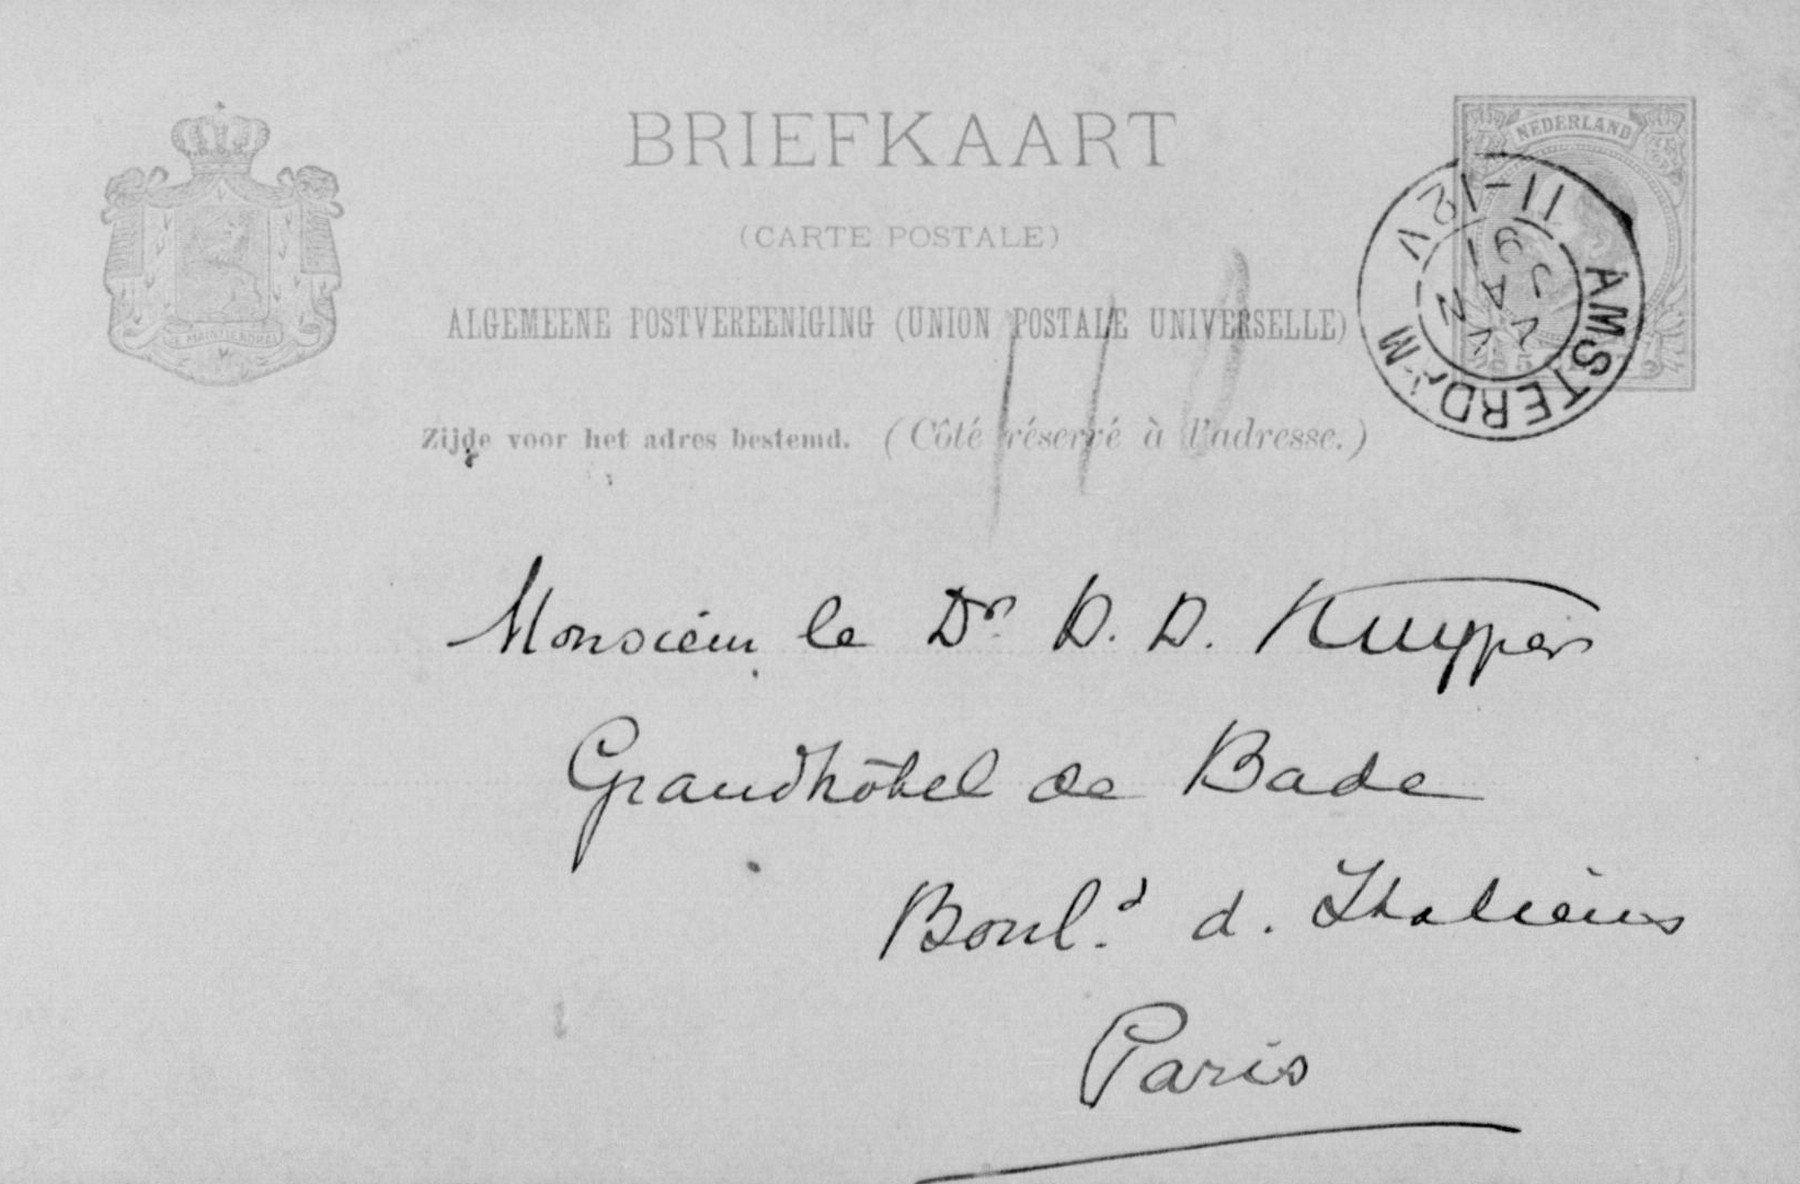 BRIEFKAART
(CARTE POSTALE)
ALGEMEENE POSTVEREENIGING (UNION POSTALE UNIVERSELLE)
Zijde voor het adres bestemd. (Côté réservé à l'adresse.)
NEDERLAND
AMSTERDAM
11-12 V
JAN
110
Monsieur le Dr. D. D. Kuyper
Grandhôtel de Bade
Boul.d d. Italiens
Paris